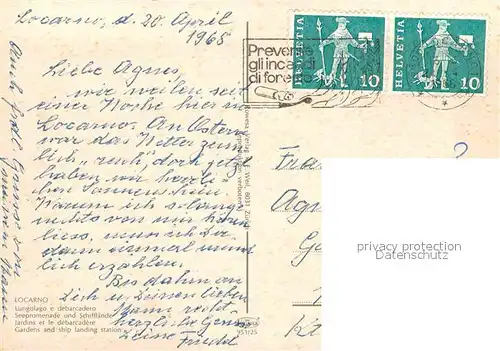 Locarno, d. 20. April
1965
Liebe Agnes,
wir weilen seit
einer Woche hier in
Locarno. An Ostern
war das Wetter ziem
lich "ruch" doch jetzt
haben wir herrli-
chen Sonnenschein.
Warum ich so lange
nichts von mir hören
liess, muss ich Dir
dann einmal münd
lich erzählen.
Bis dahin an
Dich u. Deinen lieben
Mann recht
herzliche Grüsse
Deine Friedel
Auch freundl. Grüsse von
meinem Mann
LOCARNO
Lungolago e debarcadero
Seepromenade und Schifflände
Jardins et le débarcadère
Gardens and ship landing station
951/25
Prevenite
gli incendi
di foreste
HELVETIA 10
HELVETIA 10
Frau
Agn
privacy protection
watermark